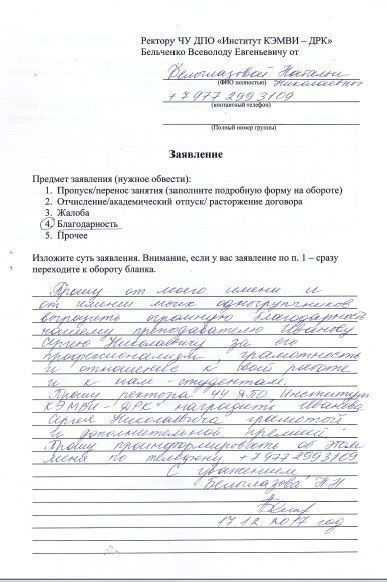 Ректору ЧУ ДПО «Институт КЭМВИ – ДРК»
Бельченко Всеволоду Евгеньевичу от
Белоглазовой Наталии
(ФИО полностью) Николаевны
+7 977 2993109
(контактный телефон)
(Полный номер группы)
Заявление
Предмет заявления (нужное обвести):
1. Пропуск/перенос занятия (заполните подробную форму на обороте)
2. Отчисление/академический отпуск/ расторжение договора
3. Жалоба
4. Благодарность
5. Прочее
Изложите суть заявления. Внимание, если у вас заявление по п. 1 – сразу
переходите к обороту бланка.
Прошу от моего имени и
от имени моих одногруппников
выразить огромную благодарность
нашему преподавателю Иванову
Сергею Николаевичу за его
профессионализм, грамотность
и отношение к своей работе
и к нам - студентам.
Прошу ректора ЧУ ДПО "Институт
КЭМВИ - ДРК" наградить Иванова
Сергея Николаевича грамотой
и дополнительной премией.
Прошу проинформировать об этом
меня по телефону +7 977 2993109
С уважением,
Белоглазова Н.Н.
17.12.2017 год